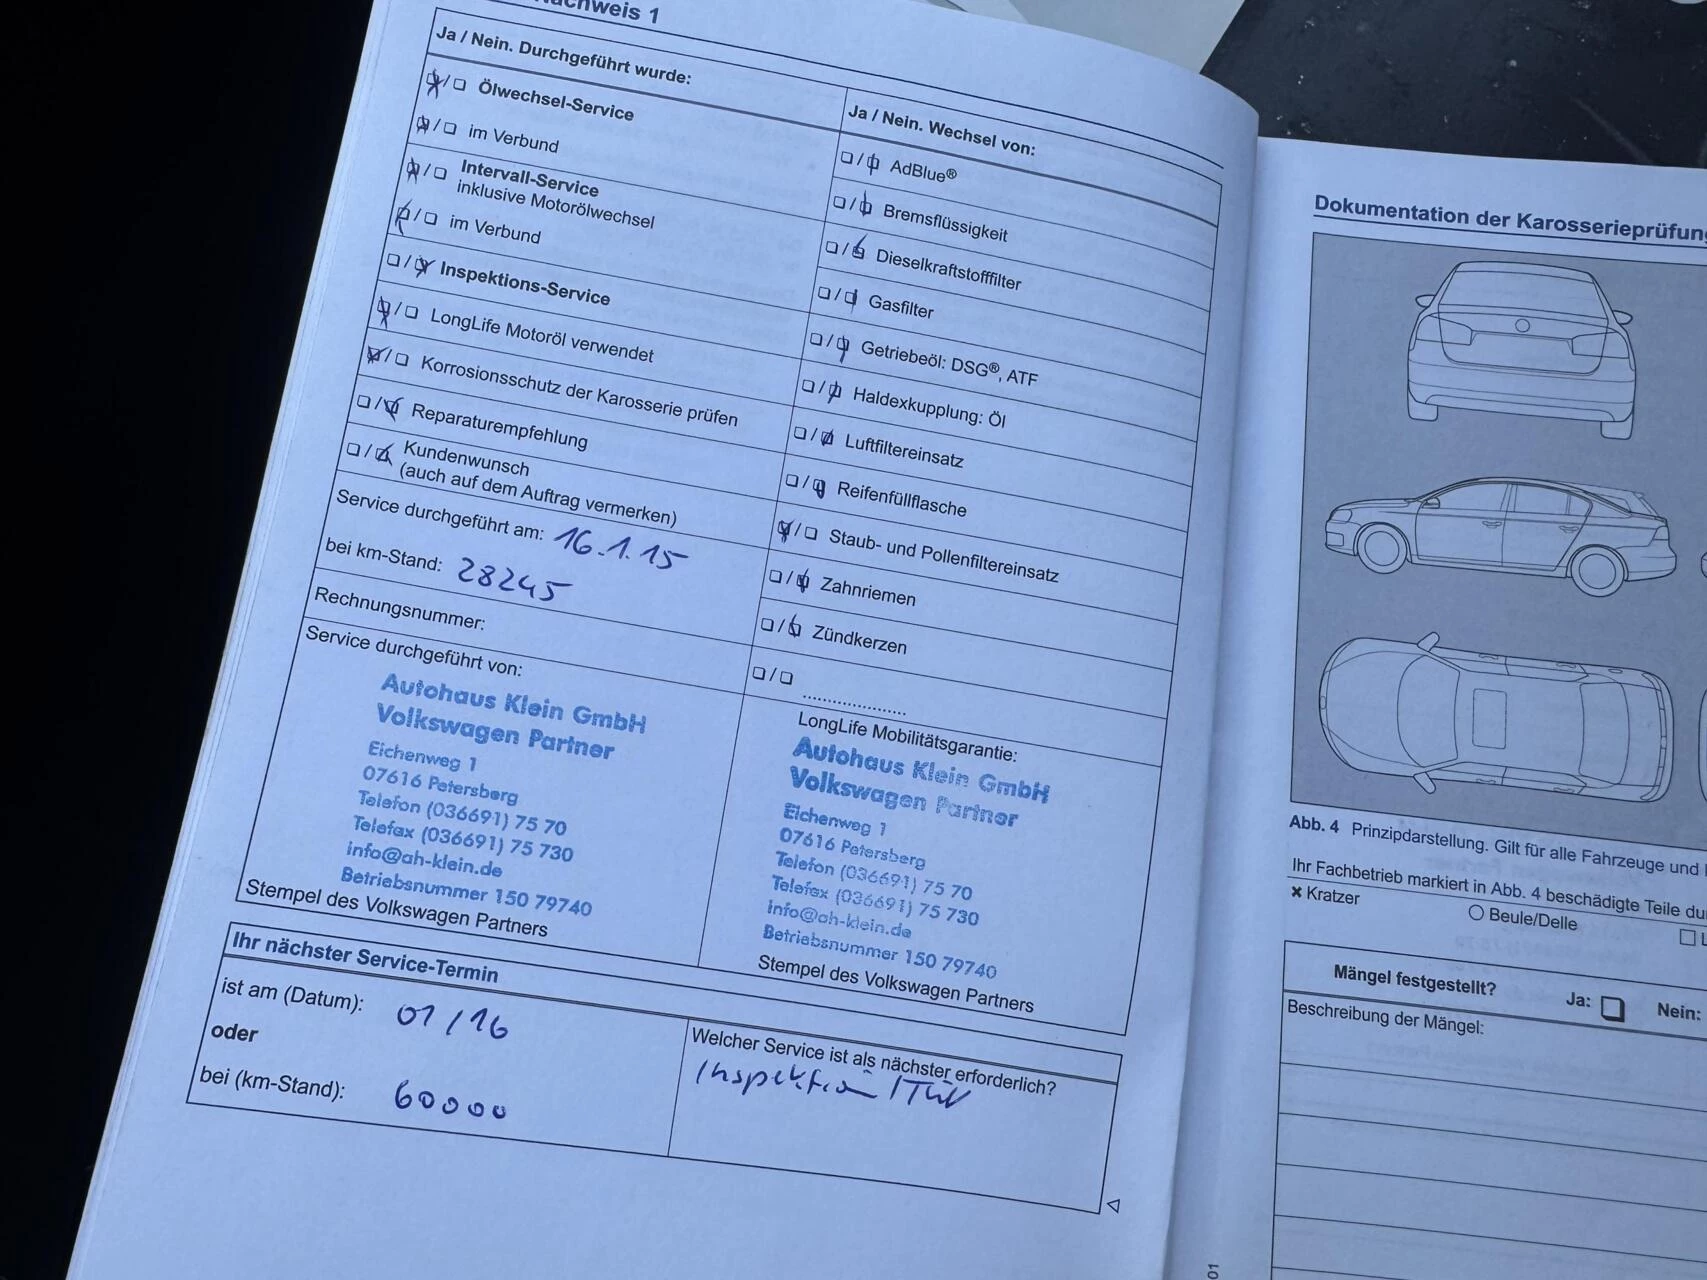 Nachweis 1
Ja / Nein. Durchgeführt wurde:
Ölwechsel-Service
im Verbund
Intervall-Service
inklusive Motorölwechsel
im Verbund
Inspektions-Service
LongLife Motoröl verwendet
Korrosionsschutz der Karosserie prüfen
Reparaturempfehlung
Kundenwunsch
(auch auf dem Auftrag vermerken)
Service durchgeführt am: 16.1.15
bei km-Stand: 28245
Rechnungsnummer:
Service durchgeführt von:
Autohaus Klein GmbH
Volkswagen Partner
Eichenweg 1
07616 Petersberg
Telefon (036691) 75 70
Telefax (036691) 75 730
info@ah-klein.de
Betriebsnummer 150 79740
Stempel des Volkswagen Partners
Ja / Nein. Wechsel von:
AdBlue®
Bremsflüssigkeit
Dieselkraftstofffilter
Gasfilter
Getriebeöl: DSG®, ATF
Haldexkupplung: Öl
Luftfiltereinsatz
Reifenfüllflasche
Staub- und Pollenfiltereinsatz
Zahnriemen
Zündkerzen
....................
LongLife Mobilitätsgarantie:
Autohaus Klein GmbH
Volkswagen Partner
Eichenweg 1
07616 Petersberg
Telefon (036691) 75 70
Telefax (036691) 75 730
info@ah-klein.de
Betriebsnummer 150 79740
Stempel des Volkswagen Partners
Ihr nächster Service-Termin
ist am (Datum): 01/16
oder
bei (km-Stand): 60000
Welcher Service ist als nächster erforderlich?
Inspektion / TÜV
Dokumentation der Karosserieprüfung
Abb. 4 Prinzipdarstellung. Gilt für alle Fahrzeuge und
Ihr Fachbetrieb markiert in Abb. 4 beschädigte Teile
Kratzer
Beule/Delle
Mängel festgestellt? Ja: Nein:
Beschreibung der Mängel:
01